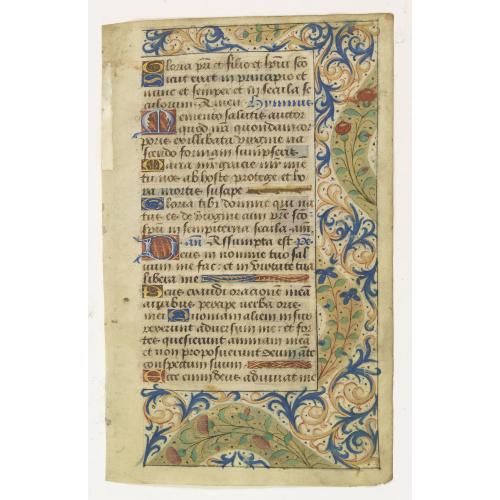 Gloria pri et filio et spui sco
Sicut erat in principio et
nunc et semper et in secula se
culorum. Amen. Hymnus
Memento salutis auctor
quod nra quondam cor
poris ex illibata virgine na
scendo formam sumpseris
Maria mr gracie mr mie
tu nos ab hoste protege et ho
ra mortis suscipe
Gloria tibi domine qui na
tus es de virgine cum pre sco
spu in sempiterna secula. am.
an. Assumpta est. ps
Deus in nomine tuo sal
uum me fac: et in virtute tua
libera me
Deus exaudi oracionem mea
auribus percipe verba oris
mei Quoniam alieni insur
rexerunt aduersum me: et for
tes quesierunt animam mea
et non proposuerunt deum ate
conspectum suum
Ecce enim deus adiuuat me